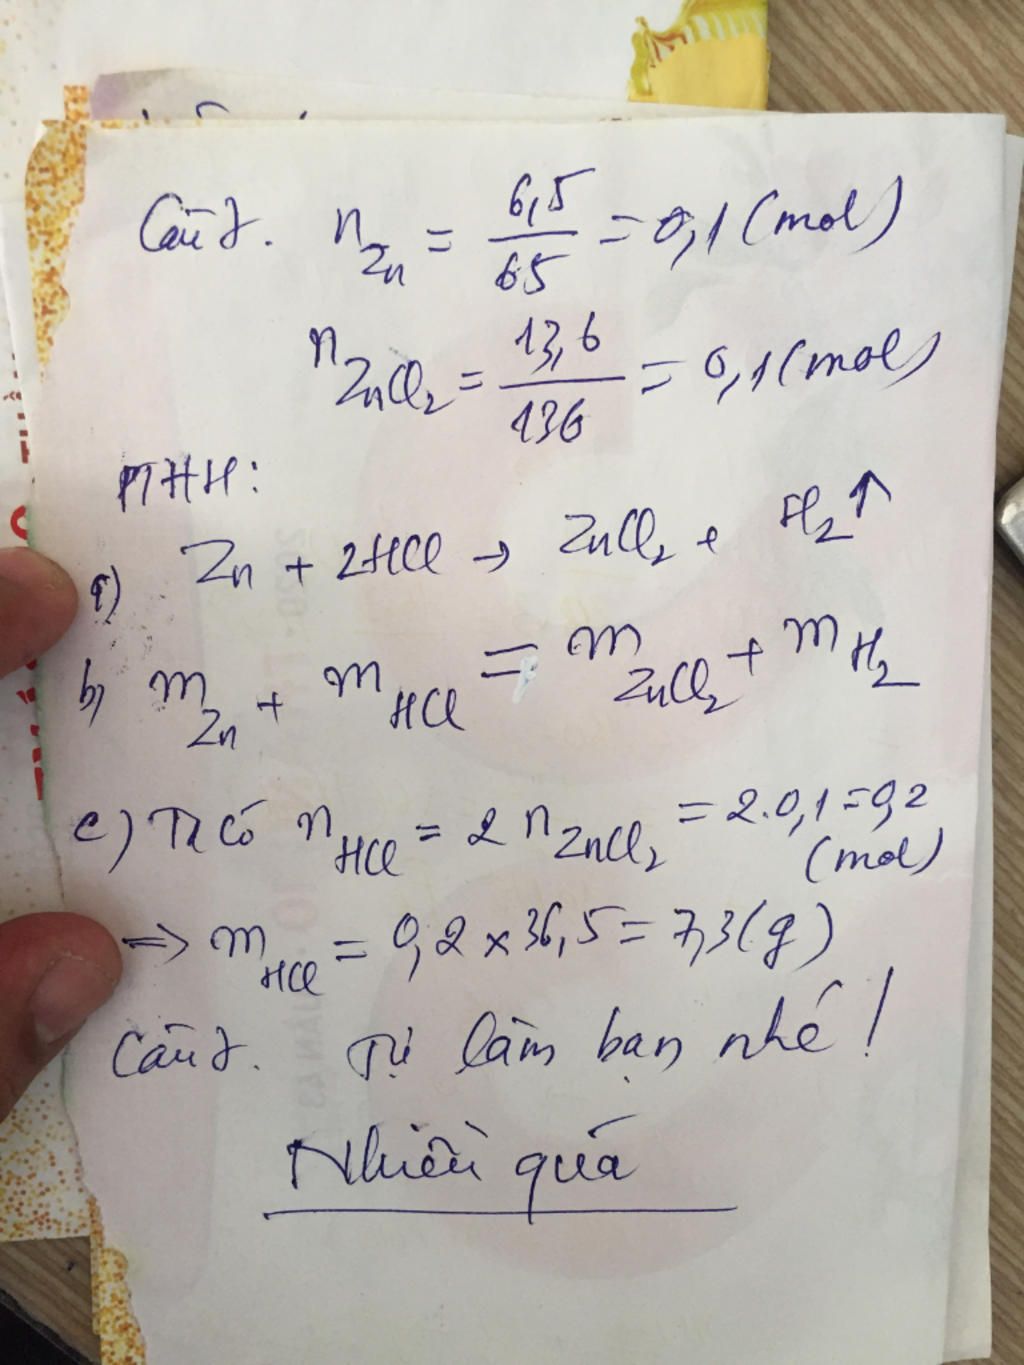 Câu 7. n Zn = 6,5 / 65 = 0,1 (mol)
n ZnCl2 = 13,6 / 136 = 0,1 (mol)
PTHH:
a) Zn + 2HCl → ZnCl2 + H2↑
b) m Zn + m HCl = m ZnCl2 + m H2
c) Ta có n HCl = 2 n ZnCl2 = 2.0,1 = 0,2
(mol)
=> m HCl = 0,2 x 36,5 = 7,3 (g)
Câu . Tự làm bạn nhé!
Nhiều quá